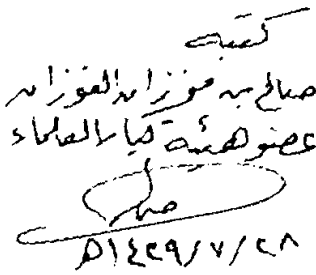 كتبه
صالح بن فوزان الفوزان
عضو هيئة كبار العلماء
صالح
٢٨/٧/١٤٢٩هـ